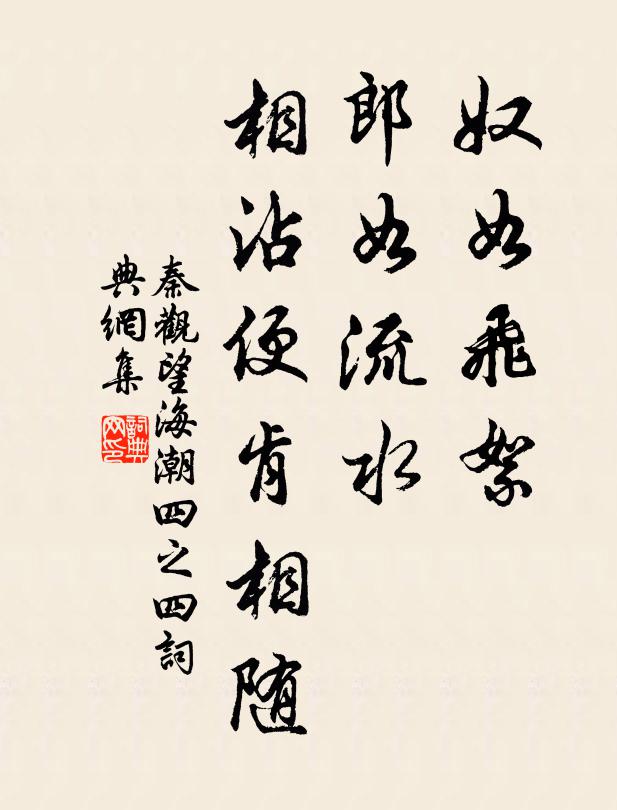 奴如飛絮
郎如流水
相沾便肯相随
秦觀望海潮四之四詞
典網集
詞典網印